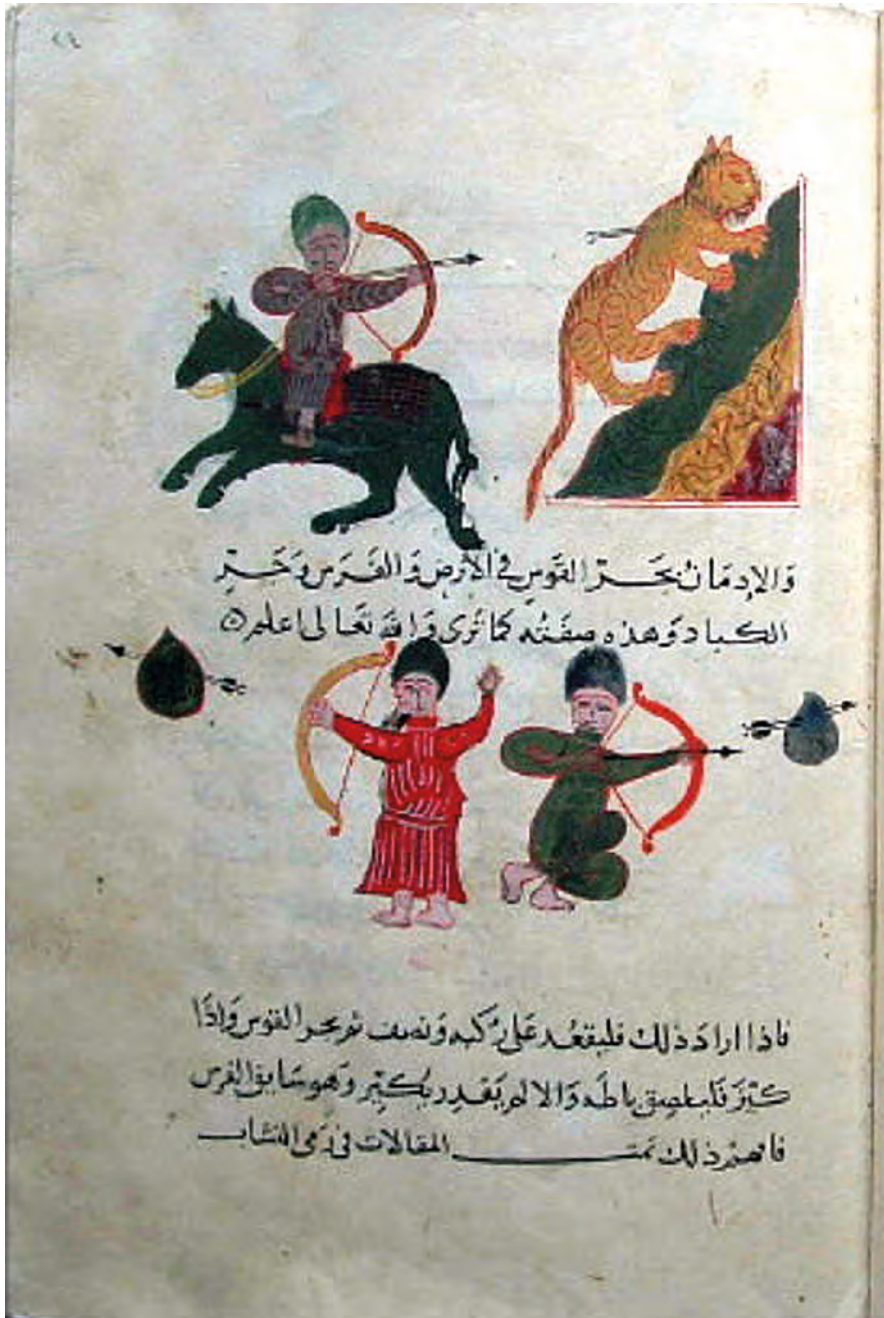 ٢٤
والإدمان بجر القوس في الأرض والفرس وجر
الكباد وهذه صفته كما ترى والله تعالى اعلم
فاذا اراد ذلك فليقعد على ركبه ونصف ثم يجر القوس واذا
كبر فليلصق باطه والا لم يقدر يكبر وهو سايق الفرس
فافهم ذلك تمت المقالات في رمى النشاب